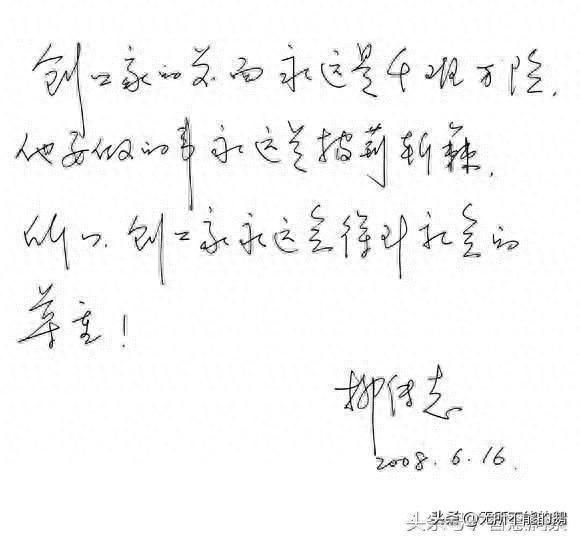 创业家的前面永远是千难万险,
他要做的事永远是披荆斩棘,
所以,创业家永远会得到社会的
尊重!
柳传志
2008.6.16.
头条@无所不能的鹅